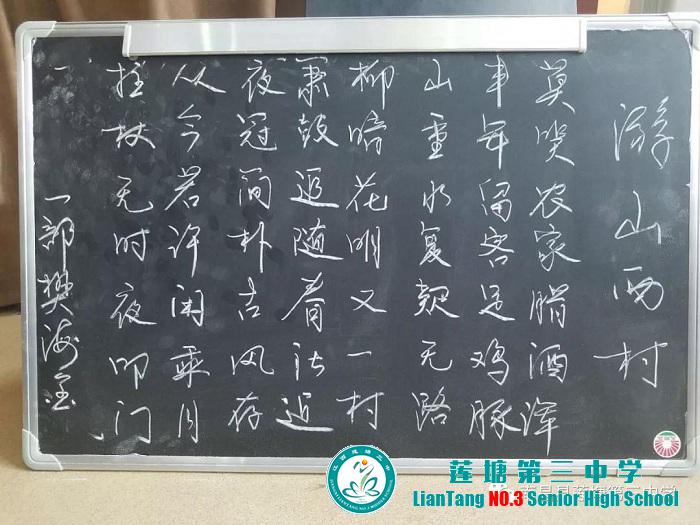 游山西村
莫笑农家腊酒浑
丰年留客足鸡豚
山重水复疑无路
柳暗花明又一村
萧鼓追随春社近
夜冠简朴古风存
从今若许闲乘月
拄杖无时夜叩门
一部樊海金
莲塘第三中学
LianTang NO.3 Senior High School
南昌县莲塘第三中学